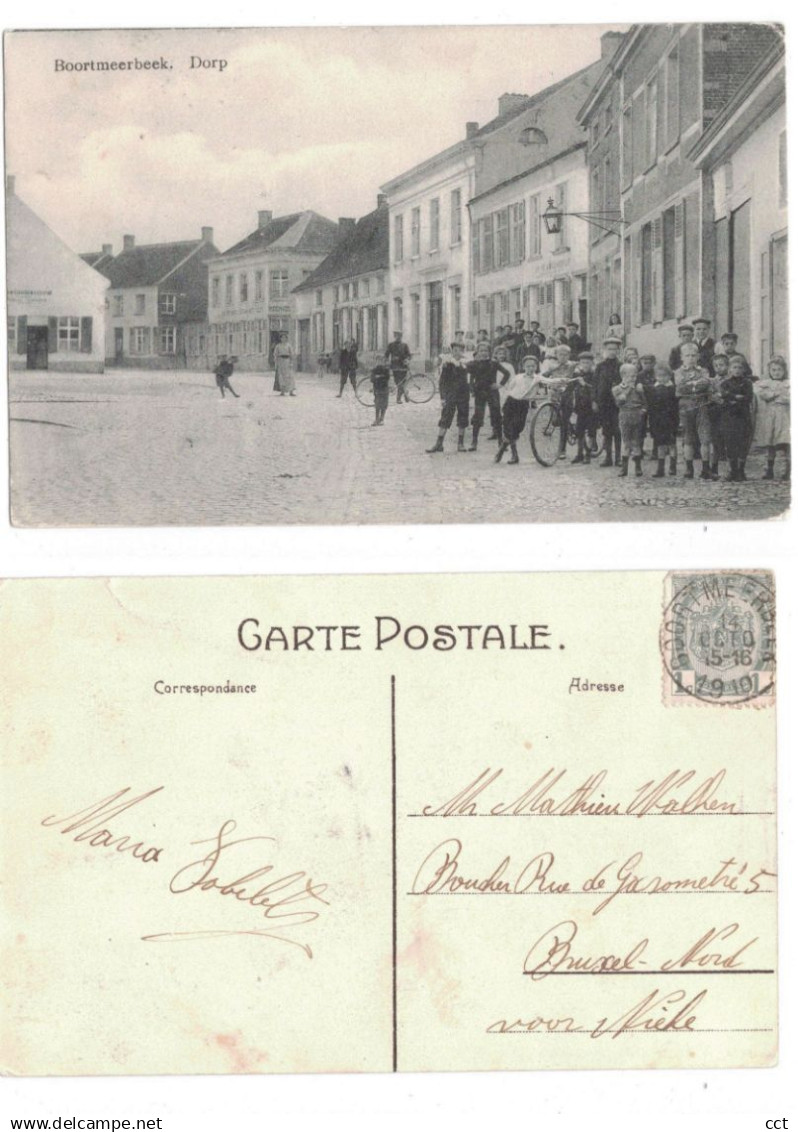 Boortmeerbeek, Dorp
CARTE POSTALE.
Correspondance
Adresse
BOORTMEERBEEK
14
OCTO
15-16
1910
1
Mr Mathieu Walhen
Boucher Rue de Gazometré 5
Bruxel-Nord
voor Mieke
Maria
www.delcampe.net
cct